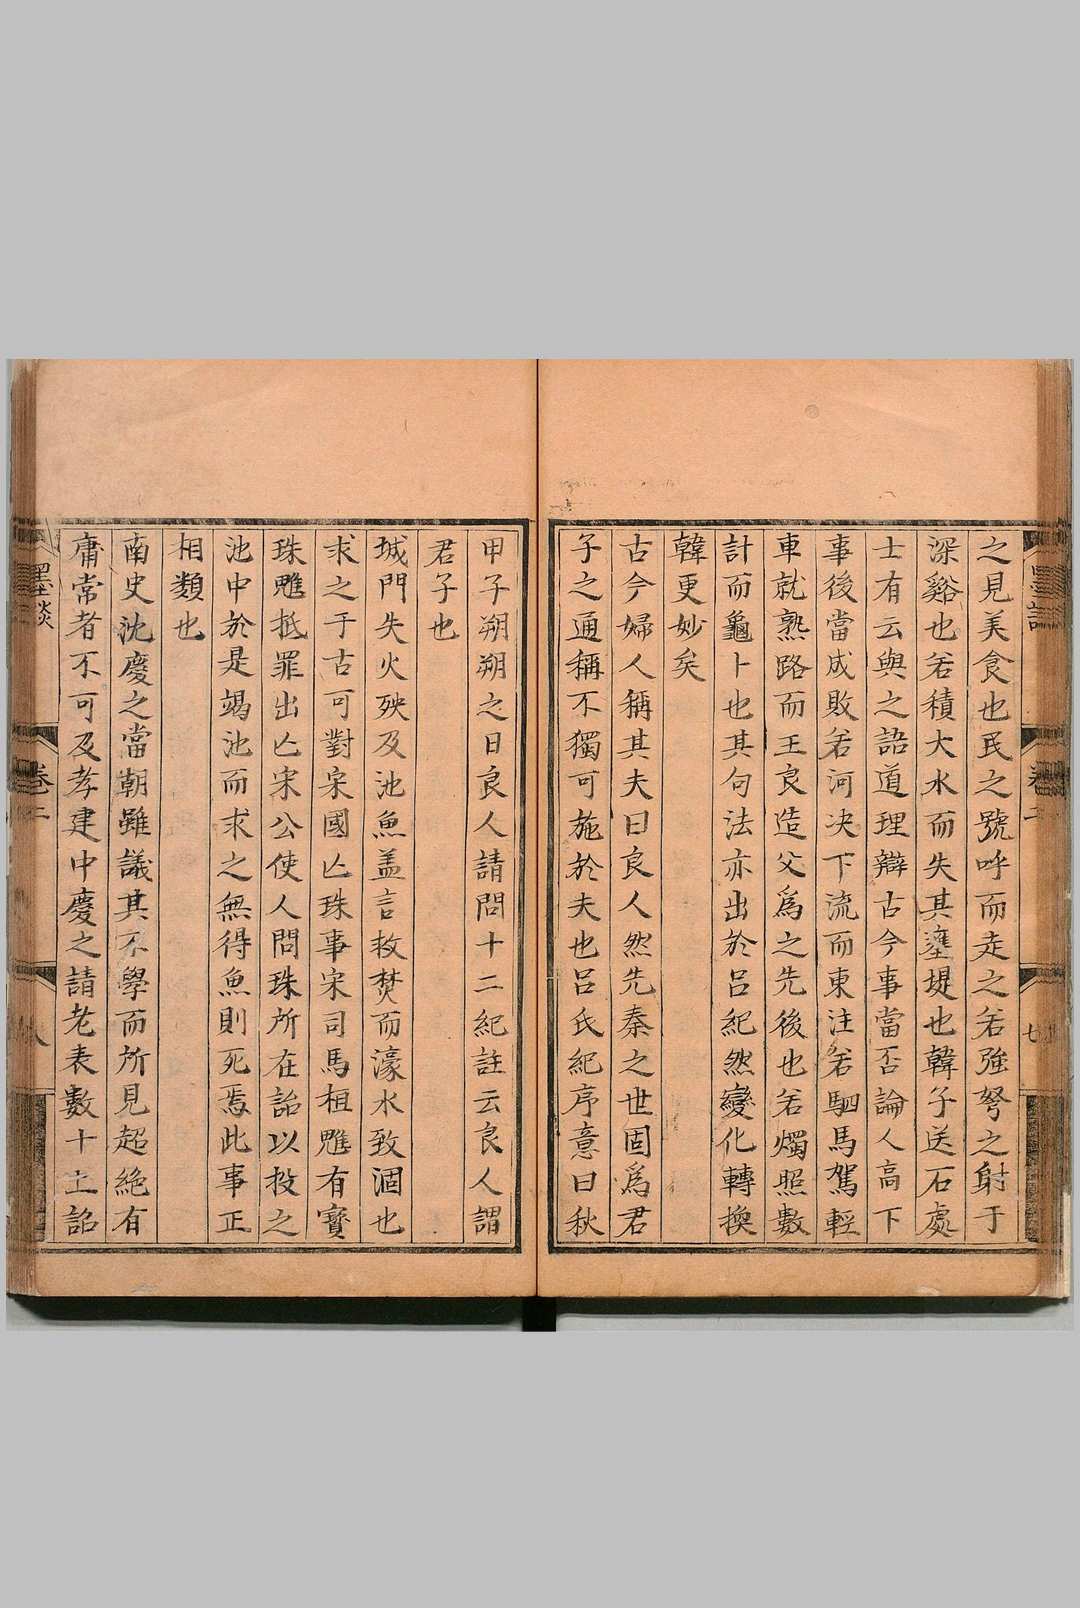 之見美食也民之號呼而走之若強弩之射于
深谿也若積大水而失其壅堤也韓子送石處
士有云與之語道理辯古今事當否論人高下
事後當成敗若河決下流而東注若駟馬駕輕
車就熟路而王良造父為之先後也若燭照數
計而龜卜也其句法亦出於呂紀然變化轉換
韓更妙矣
古今婦人稱其夫曰良人然先秦之世固為君
子之通稱不獨可施於夫也呂氏紀序意曰秋
甲子朔朔之日良人請問十二紀註云良人謂
君子也
城門失火殃及池魚盖言救焚而濠水致涸也
求之于古可對宋國亾珠事宋司馬桓魋有寶
珠魋抵罪出亾宋公使人問珠所在詒以投之
池中於是竭池而求之無得魚則死焉此事正
相類也
南史沈慶之當朝雖議其不學而所見超絶有
庸常者不可及孝建中慶之請老表數十上詔
墨談
卷二
八
卷二
七